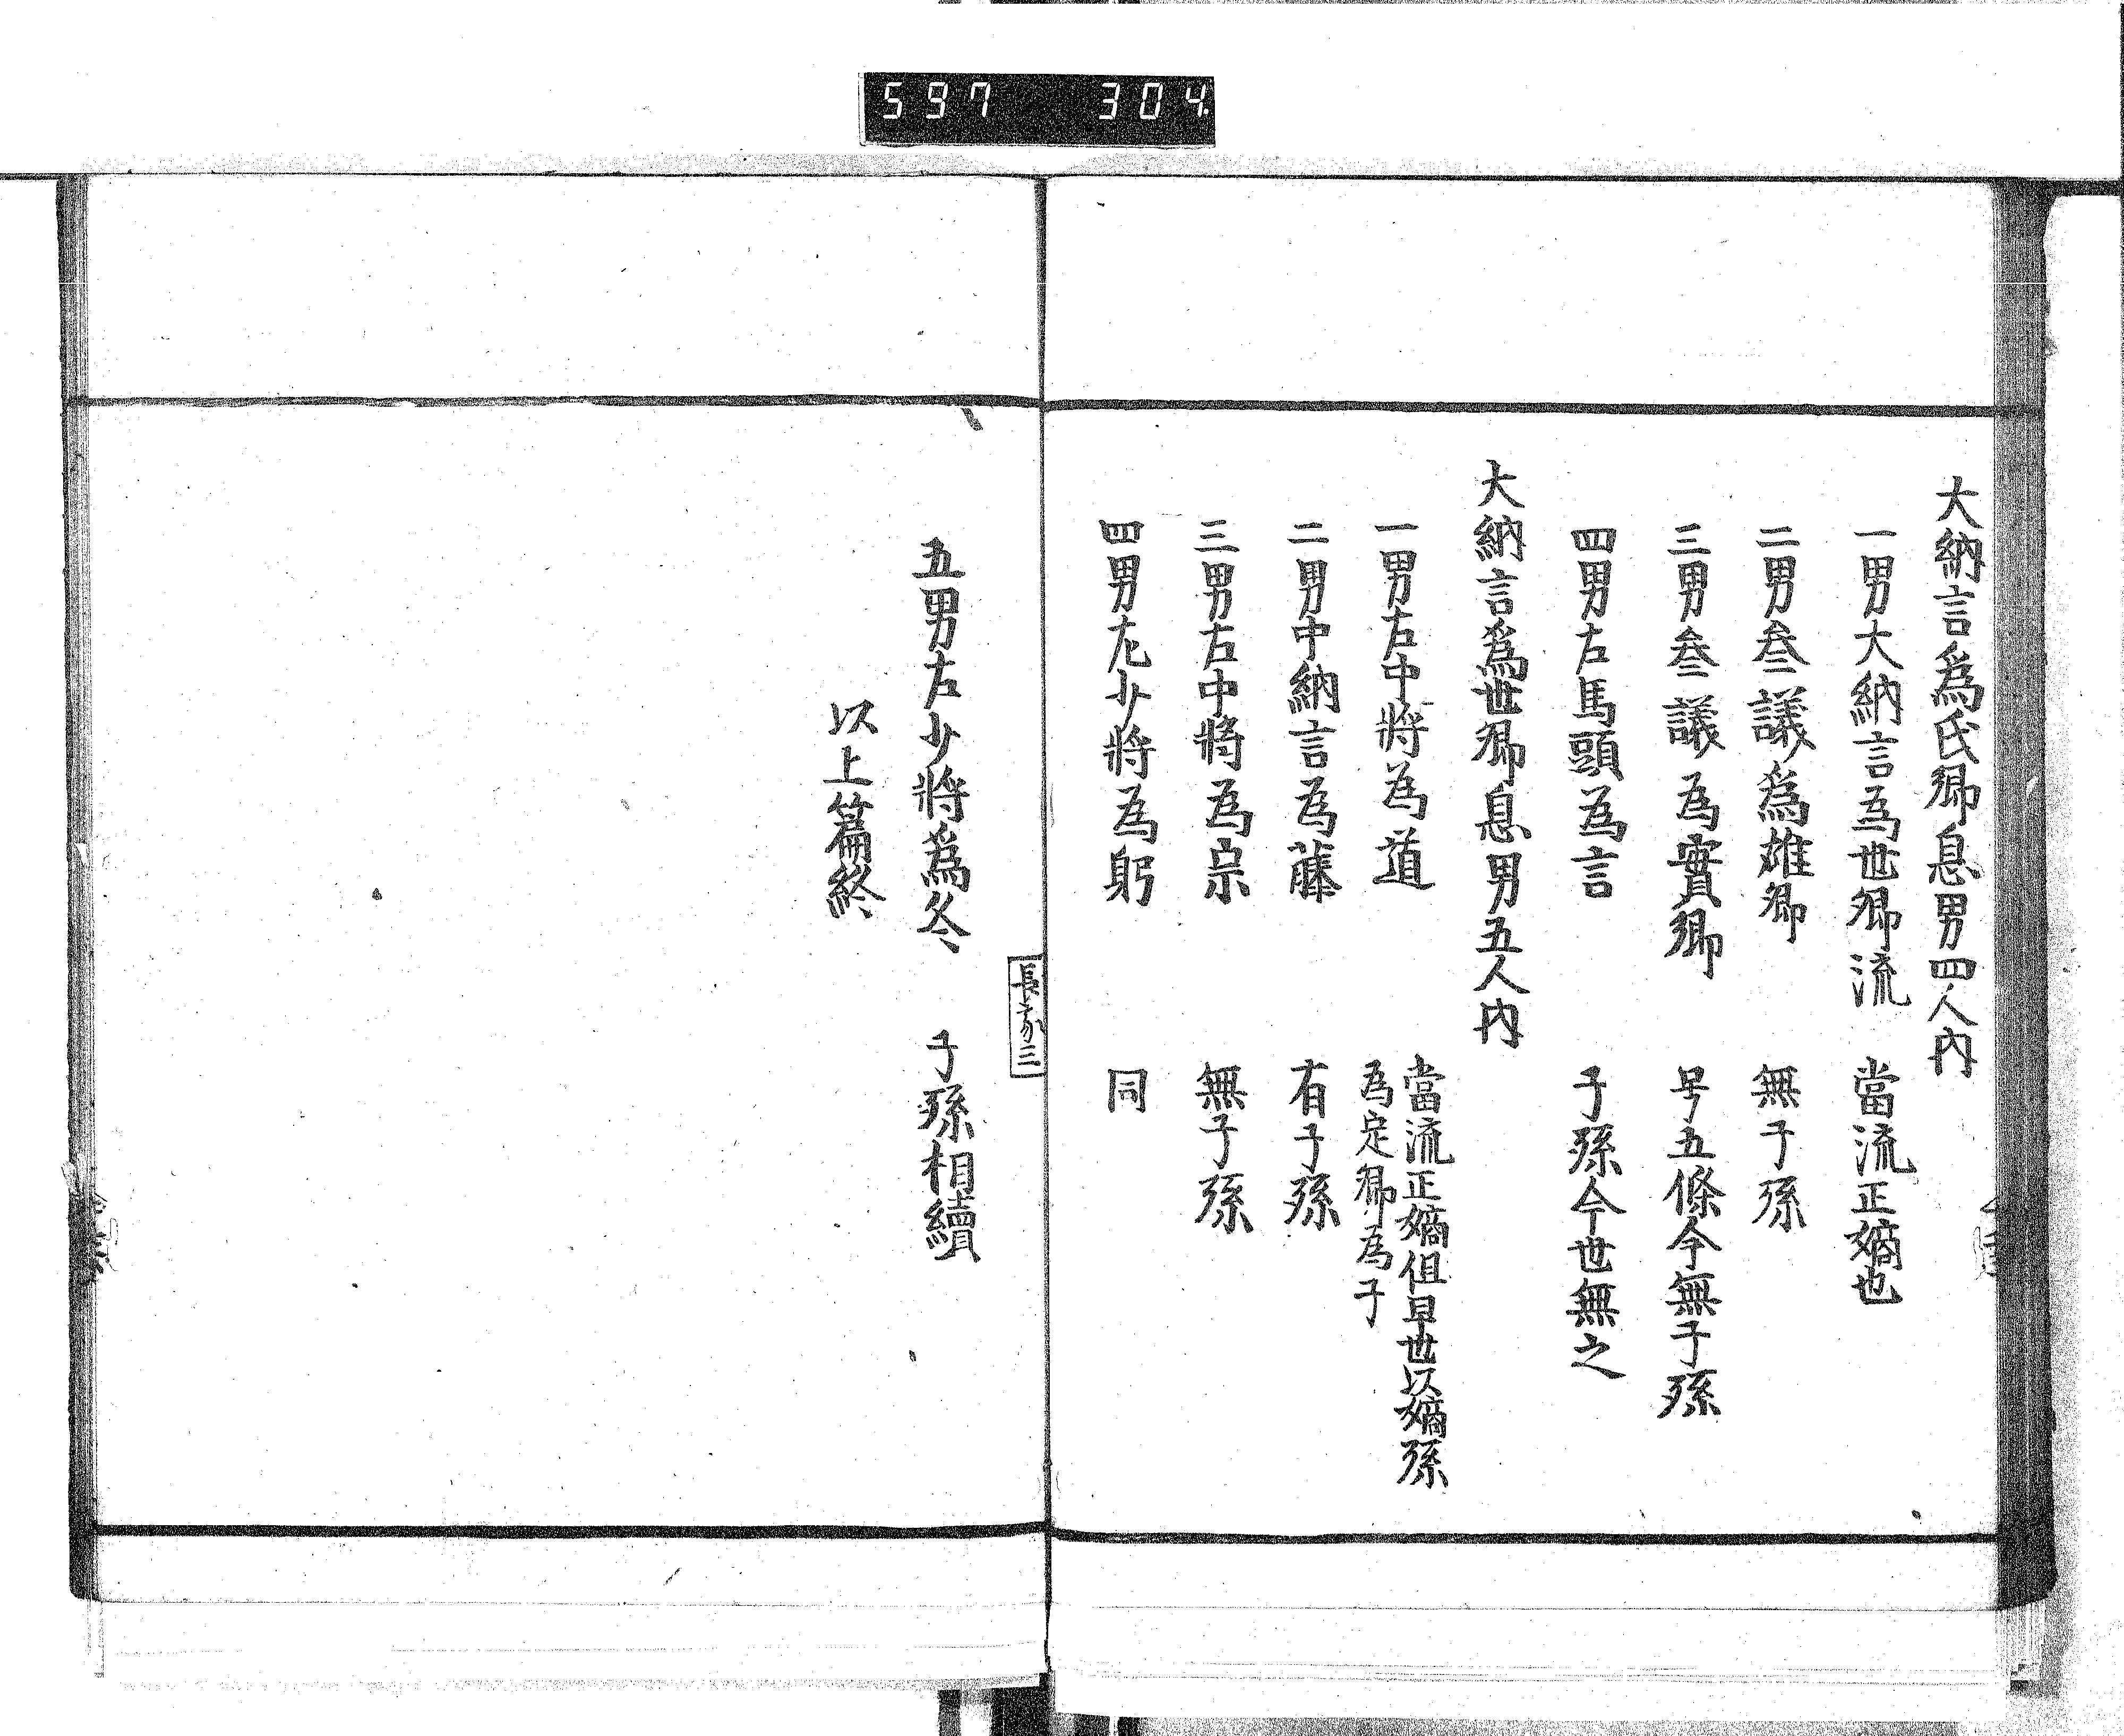 597 304
大納言爲氏卿息男四人内
一男大納言為世卿流 當流正嫡也
二男叅議爲雄卿 無子孫
三男叅議為實卿 号五條今無子孫
四男右馬頭為言 子孫今世無之
大納言爲世卿息男五人内
一男右中將為道 當流正嫡但早世以嫡孫
為定卿為子
二男中納言為藤 有子孫
三男右中将為宗 無子孫
四男左少将為躬 同
長家三
五男右少將爲冬 子孫相續
以上篇終